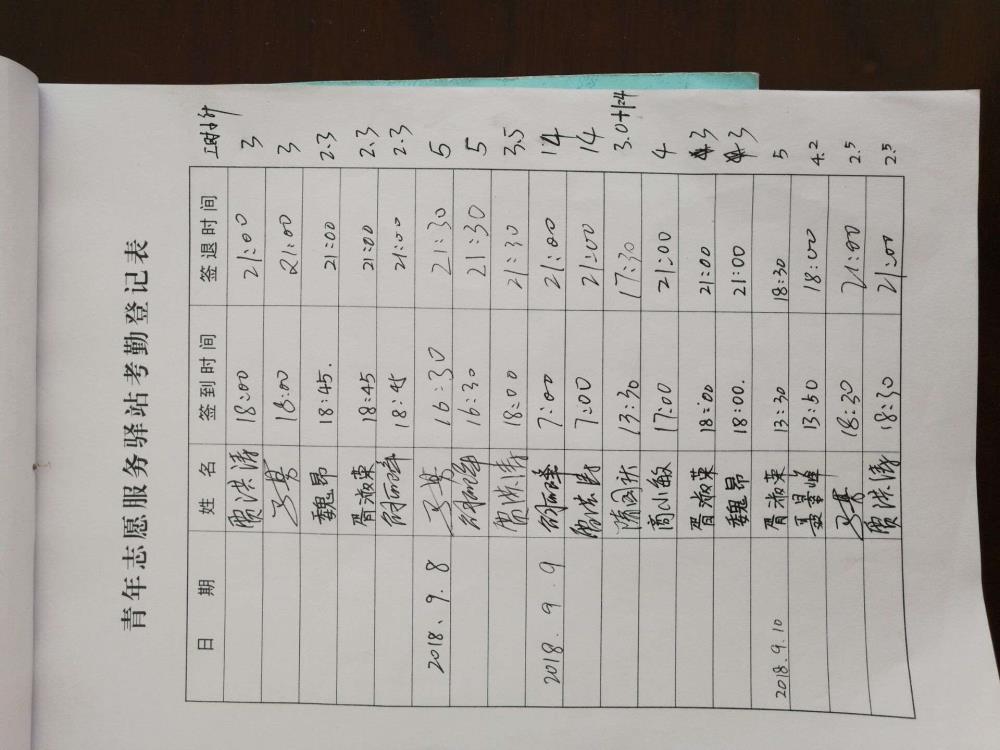 青年志愿服务驿站考勤登记表
日 期 姓 名 签到时间 签退时间
贾洪涛 18:00 21:00 3
18:00 21:00 3
魏昂 18:45. 21:00 2.3
胥淑荣 18:45 21:00 2.3
18:45 21:00 2.3
2018、9.8 16:30 21:30 5
16:30 21:30 5
贾洪涛 18:00 21:30 3.5
2018.9.9 7:00 21:00 14
贾洪涛 7:00 21:00 14
13:30 17:30
高小敏 17:00 21:00 4
胥淑荣 18:00 21:00 3
魏昂 18:00. 21:00 3
2018.9.10 胥淑荣 13:30 18:30 5
聂景峰 13:50 18:00 4.2
18:30 21:00 2.5
贾洪涛 18:30 21:00 2.5